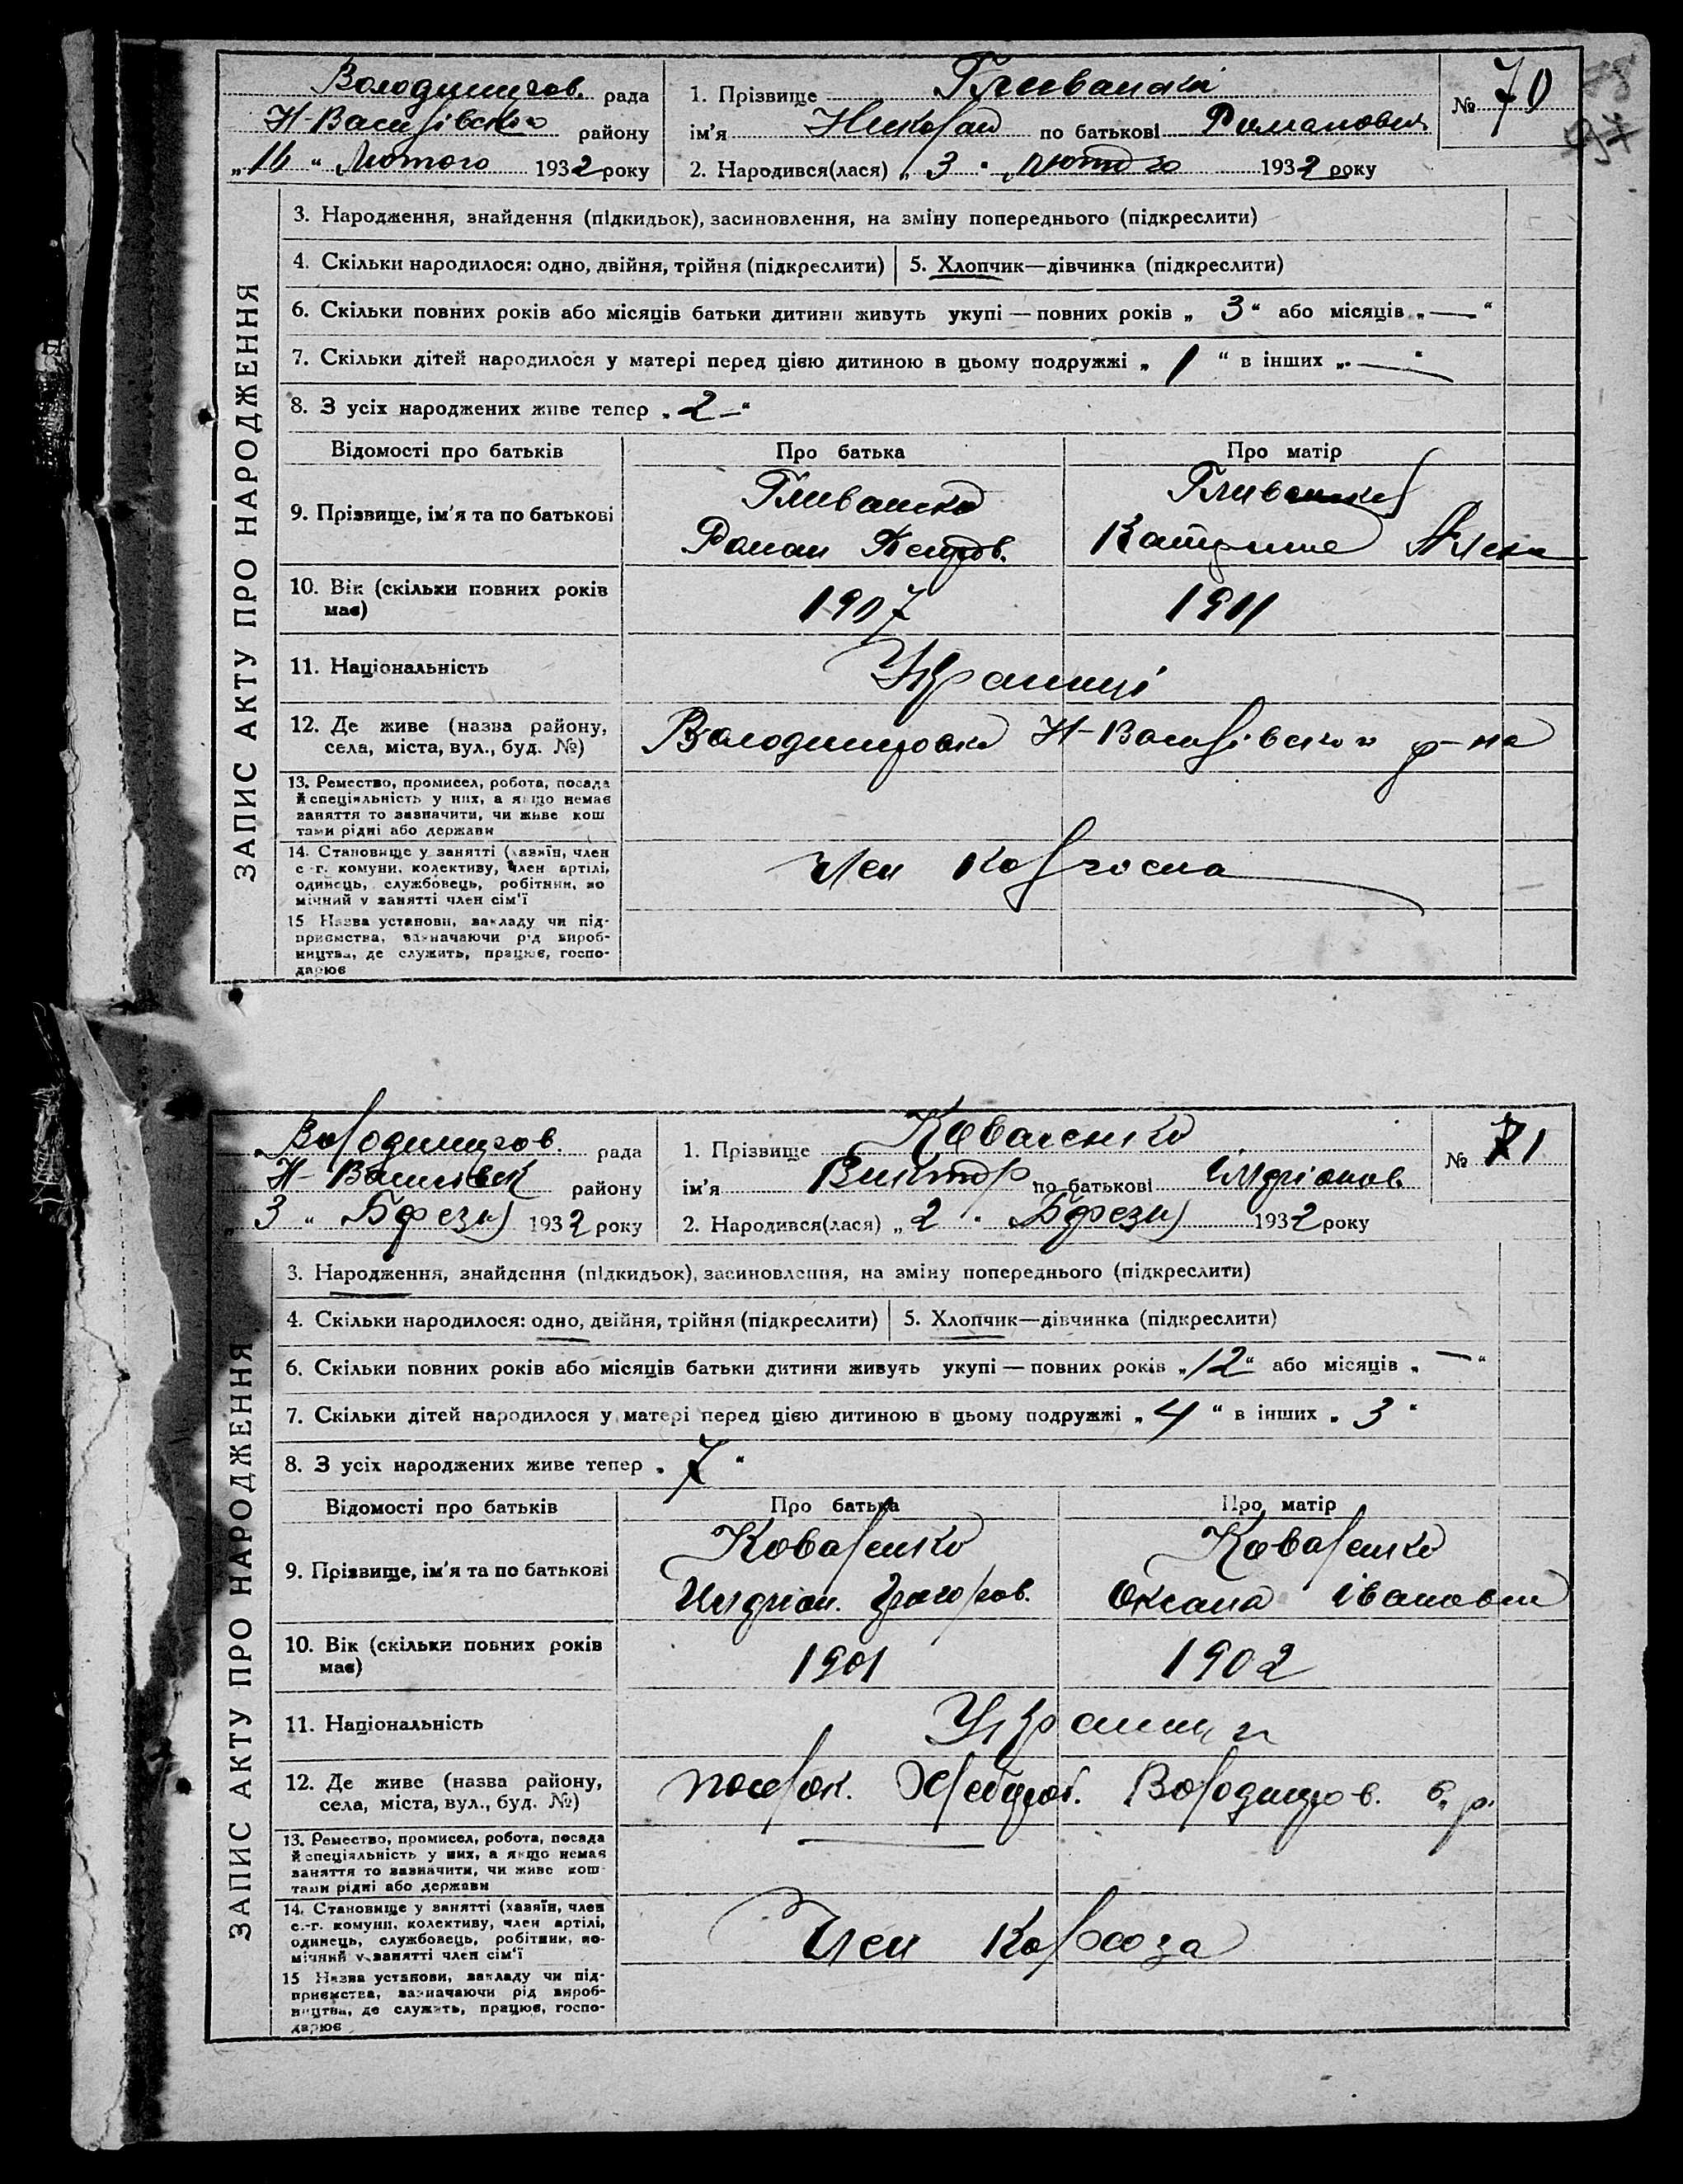 Володимиров. рада
Н-Василівсько району
„16“ Лютого 1932 року
1. Прізвище
ім'я Николай по батькові Романович
2. Народився(лася) „3“ лютого 1932 року
№ 70
ЗАПИС АКТУ ПРО НАРОДЖЕННЯ
3. Народження, знайдення (підкидьок), засиновлення, на зміну попереднього (підкреслити)
4. Скільки народилося: одно, двійня, трійня (підкреслити) 5. Хлопчик—дівчинка (підкреслити)
6. Скільки повних років або місяців батьки дитини живуть укупі — повних років „3“ або місяців „—“
7. Скільки дітей народилося у матері перед цією дитиною в цьому подружжі „1“ в інших „—“
8. З усіх народжених живе тепер „2—“
Відомості про батьків Про батька Про матір
9. Прізвище, ім'я та по батькові
Роман Петров.
10. Вік (скільки повних років має) 1907 1911
11. Національність Українці
12. Де живе (назва району, села, міста, вул., буд. №) Володимировка Н-Василівсько р-на
13. Ремество, промисел, робота, посада
й спеціяльність у них, а якщо немає
заняття то зазначити, чи живе кош
тами рідні або держави
14. Становище у занятті (хазяїн, член
с.-г. комуни, колективу, член артілі,
одинець, службовець, робітник, по
мічний у занятті член сім'ї
член колгоспа
15 Назва установи, закладу чи під-
приємства, зазначаючи рід вироб-
ництва, де служить, працює, госпо-
дарює
Володимиров. рада
Н-Василівськ району
„3“ Березн 1932 року
1. Прізвище Коваленко
ім'я Виктор по батькові Індріонов.
2. Народився(лася) „2“ Березн 1932 року
№ 71
ЗАПИС АКТУ ПРО НАРОДЖЕННЯ
3. Народження, знайдення (підкидьок), засиновлення, на зміну попереднього (підкреслити)
4. Скільки народилося: одно, двійня, трійня (підкреслити) 5. Хлопчик—дівчинка (підкреслити)
6. Скільки повних років або місяців батьки дитини живуть укупі — повних років „12“ або місяців „—“
7. Скільки дітей народилося у матері перед цією дитиною в цьому подружжі „4“ в інших „3“
8. З усіх народжених живе тепер „7“
Відомості про батьків Про батька Про матір
9. Прізвище, ім'я та по батькові Коваленко Коваленко
Индрион. Григоров. Оксана Івановн
10. Вік (скільки повних років має) 1901 1902
11. Національність
12. Де живе (назва району, села, міста, вул., буд. №) посёлок. Хлебороб. Володимиров. с. р.
13. Ремество, промисел, робота, посада
й спеціяльність у них, а якщо немає
заняття то зазначити, чи живе кош-
тами рідні або держави
14. Становище у занятті (хазяїн, член
с.-г. комуни, колективу, член артілі,
одинець, службовець, робітник, по-
мічний у занятті член сім'ї
Член колхоза
15 Назва установи, закладу чи під-
приємства, зазначаючи рід вироб-
ництва, де служить, працює, госпо-
дарює